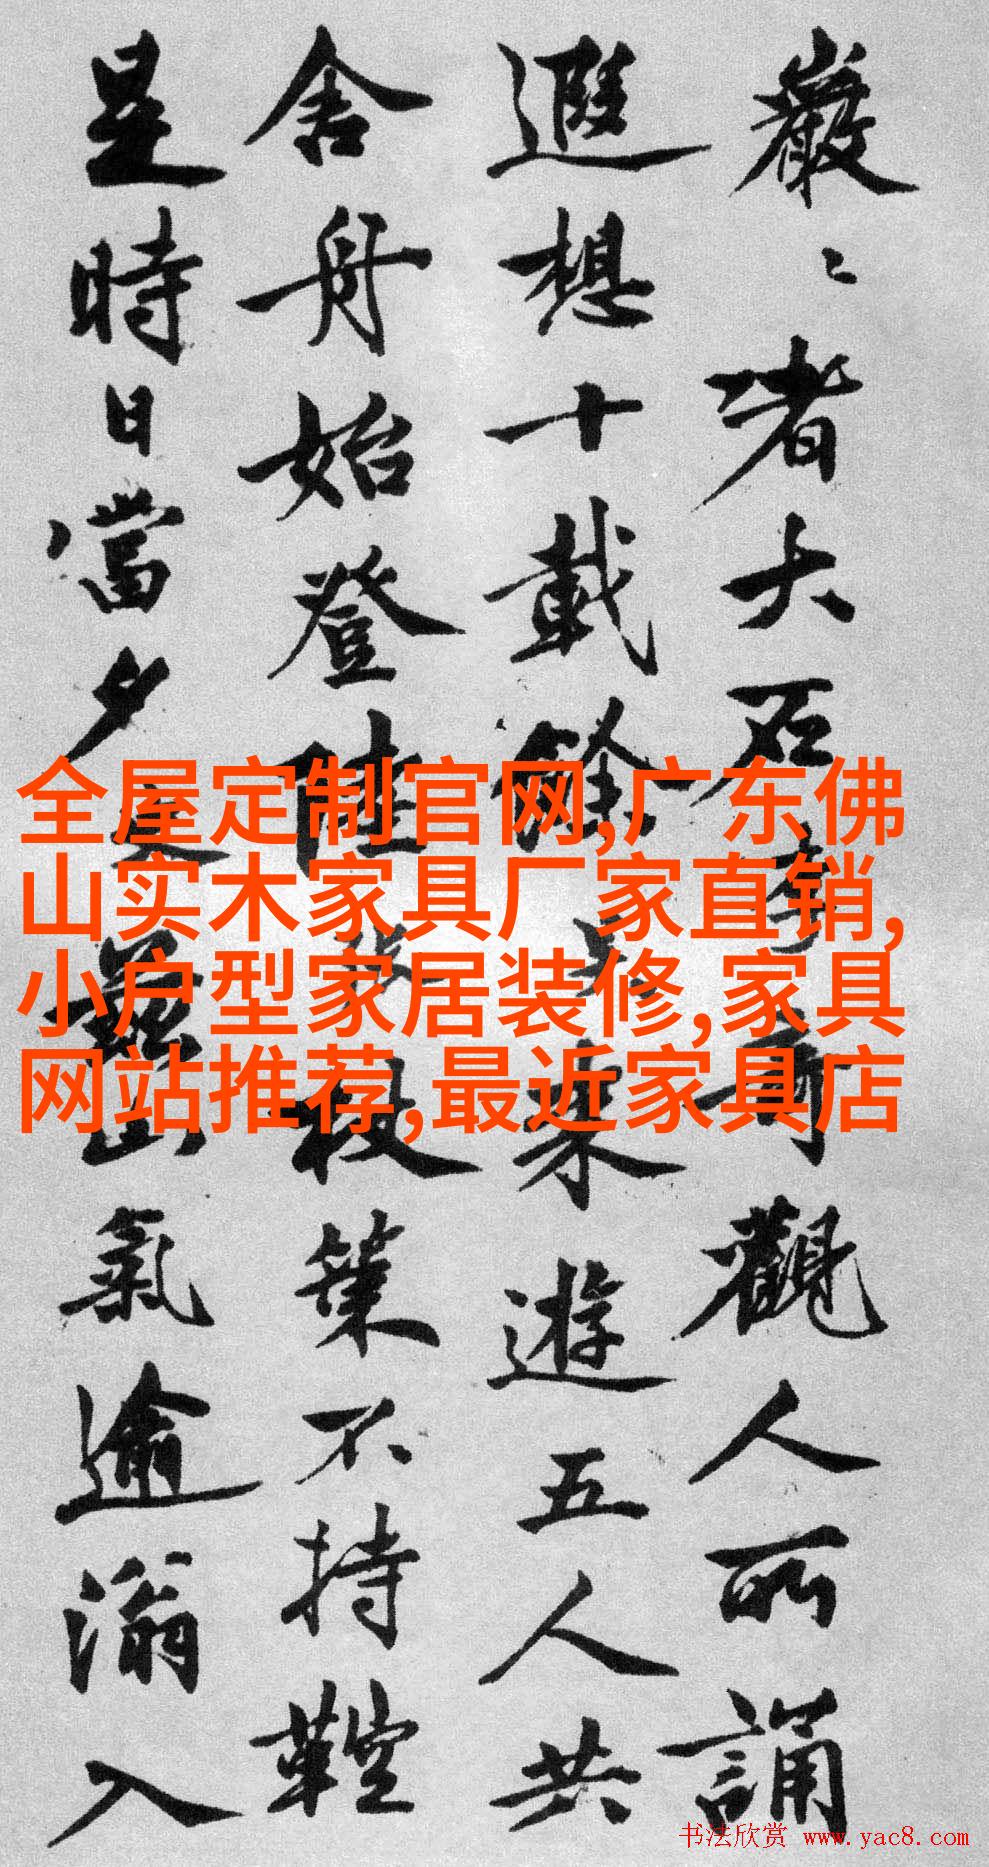 巖〻者大石奇觀人所誦
遐想十載餘今來遊五人共
舍舟始登陸杖策不持鞚
是時日當夕氣逾滃入
全屋定制官网,广东佛
山实木家具厂家直销,
小户型家居装修,家具
网站推荐,最近家具店
书法欣赏 www.yac8.com